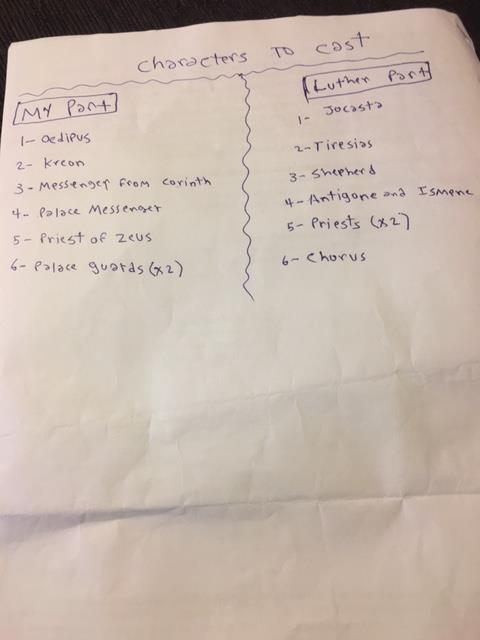 characters to cast
My Part
1- Oedipus
2- Kreon
3- Messenger from corinth
4- Palace Messenger
5- Priest of Zeus
6- Palace guards (x2)
Luther Part
1- Jocasta
2- Tiresias
3- Shepherd
4- Antigone and Ismene
5- Priests (x2)
6- Chorus